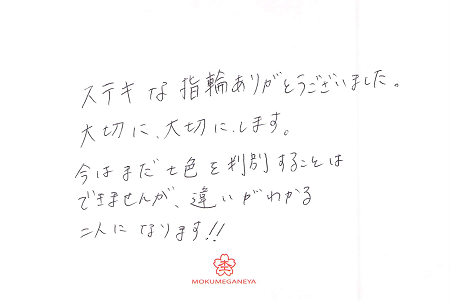 ステキな指輪ありがとうございました。
大切に、大切に、します。
今はまだ七色を判別することは
できませんが、違いがわかる
二人になります!!
MOKUMEGANEYA